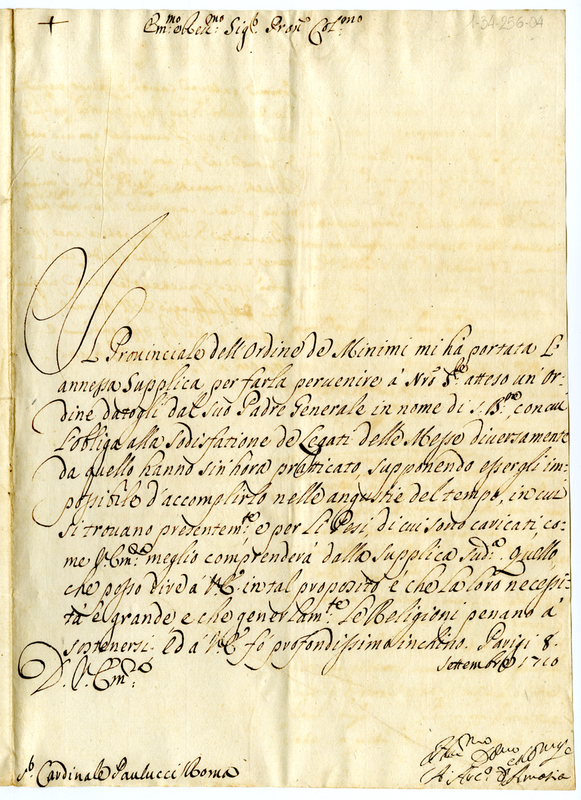 +
Em.mo e Rev.mo Sig.r Pron. Col.mo
1-34-256-04
IL Provinciale dell'Ordine de Minimi mi hà portata L'
annessa Supplica per farla pervenire à Nro S.re atteso un' Or-
dine datogli dal suo Padre Generale in nome di S. B.ne con cui
L'obliga alla Sodisfatione de Legati delle Messe diversamente
da quello hanno sin'hora pratticato supponendo essergli im-
possibile d'accomplirlo nelle angustie del tempo, in cui
si trovano presentem.te e per li Pesi di cui sono caricati, co-
me V. Em.za meglio comprenderà dalla Supplica sud.a Quello,
che posso dire à V.E. in tal proposito è che la loro necessi-
tà è grande e che generlam.te Le Religioni penano à
sostenersi. Ed à V.E. fò profondissimo inchino. Parigi 8.
Settembre 1710
D. V. Em.za
S.r Cardinale Paulucci Roma